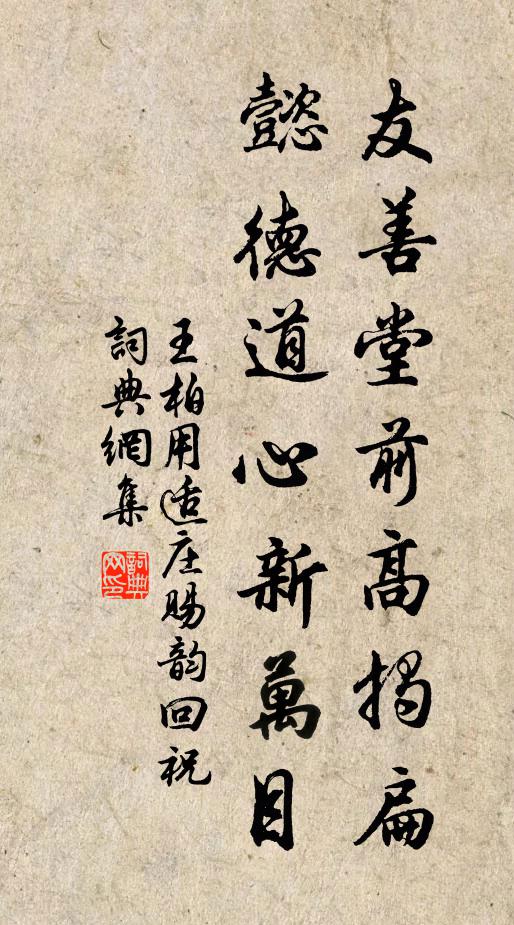 友善堂前高揭扁
懿德道心新萬目
王柏用适庄賜韵回祝
詞典網集
詞典网印